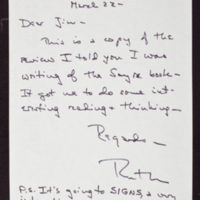 March 22-
Dear Jim-
This is a copy of the
review I told you I was
writing of the Sayre book-
It got me to do some int-
eresting reading & thinking-
Regards-
Ruth
P.S. It's going to SIGNS, a very